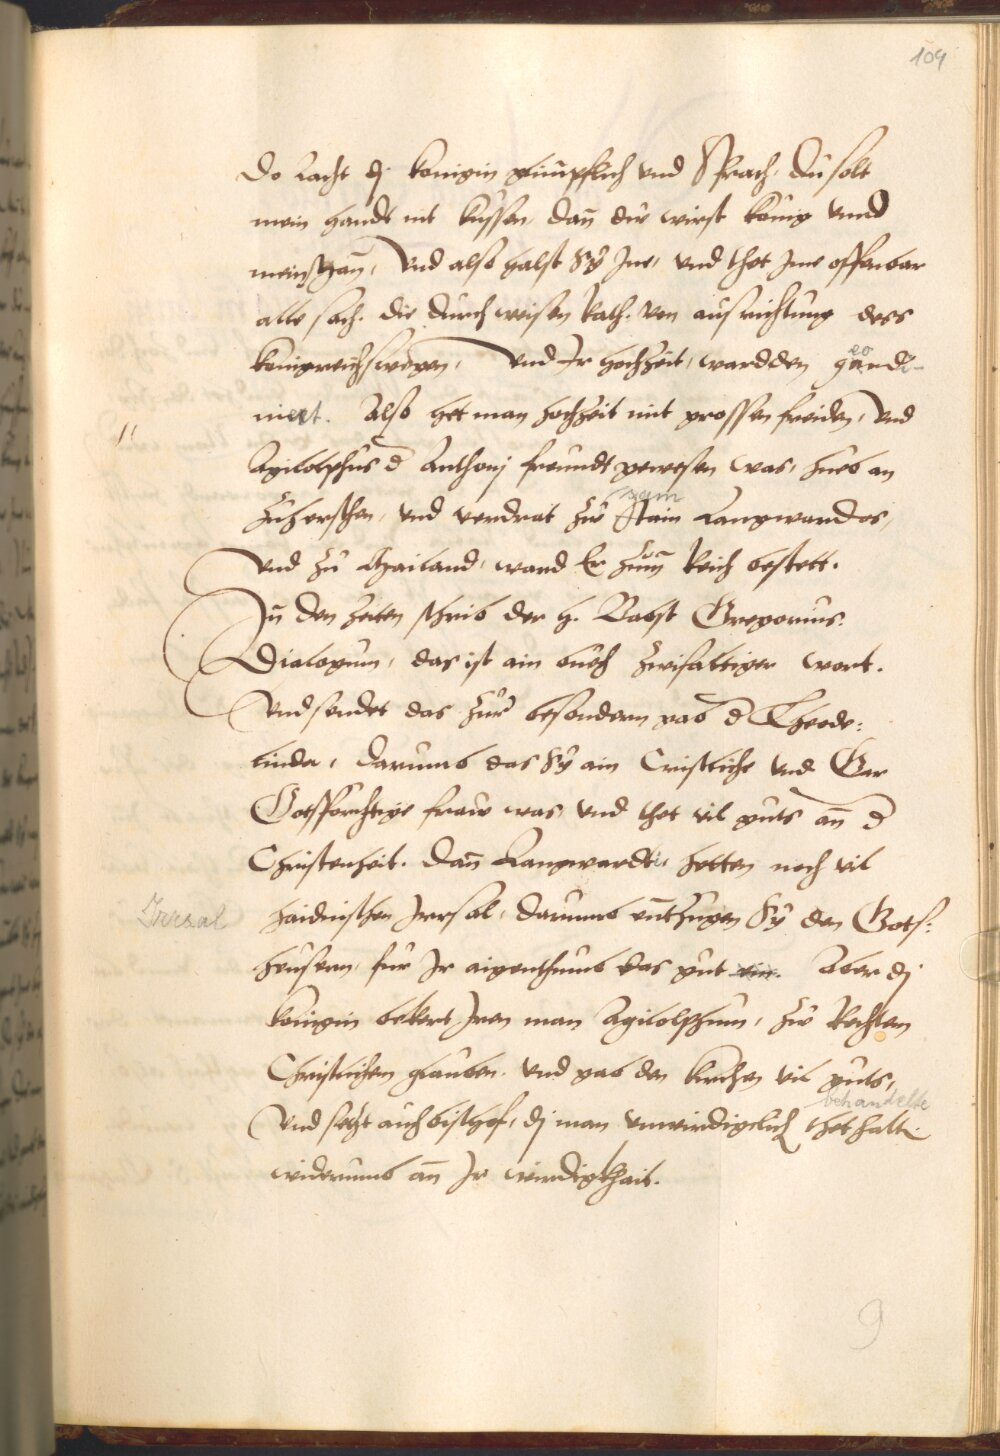 104
Do lacht dj konigin glimpflich vnd Sprach, du solt
mein handt nit kussen, dan̄ du wirst kung vnnd
mein Man̄, Vnd also halst Sÿ Jne, vnd thet Jme offenbar
alle sach. die durch weisen Rath. von ausrichtung dess
konigreichs wegen, vnd Ir hochzeit, wardden
eo
niert. Also het man hochzeit mit grossen freiden, Vnd
Agilolphus d Anthonj freundt gewesen was, hueb an
zuhersthen, vnd verdrat zu Stain Langwardos,
sam
Vnd zu Mailand, ward Er zum̄ Reich bestett.
Jn̄ den Zeiten schrib der h. Babst Gregorius.
Dialogum, das ist ain buch zwifaltiger wort.
Vnd sendet das zur besondern gab d Theode:
linda, darumb das Sÿ ain Cristliche vnd Ger
Gotsforchtige fraw was, vnd thet vil guts an̄ d
Christenheit. Dan̄ Langwardi, hetten noch vil
Irrsal
haidnischen Jrrsal, darumb entzugen Sÿ den Gots:
heusern, fur Jr aigenthumb das gut ein. Aber dj
konigin bekert Jren man Agilolphum, zu Rechten
Christlichem glauben. vnd gab den kirchen vil guts,
behandelte
Vnd setzt auch bischof, dj man vnwirdigclich thet halt
widerumb an̄ Jr wirdigkhait.
9